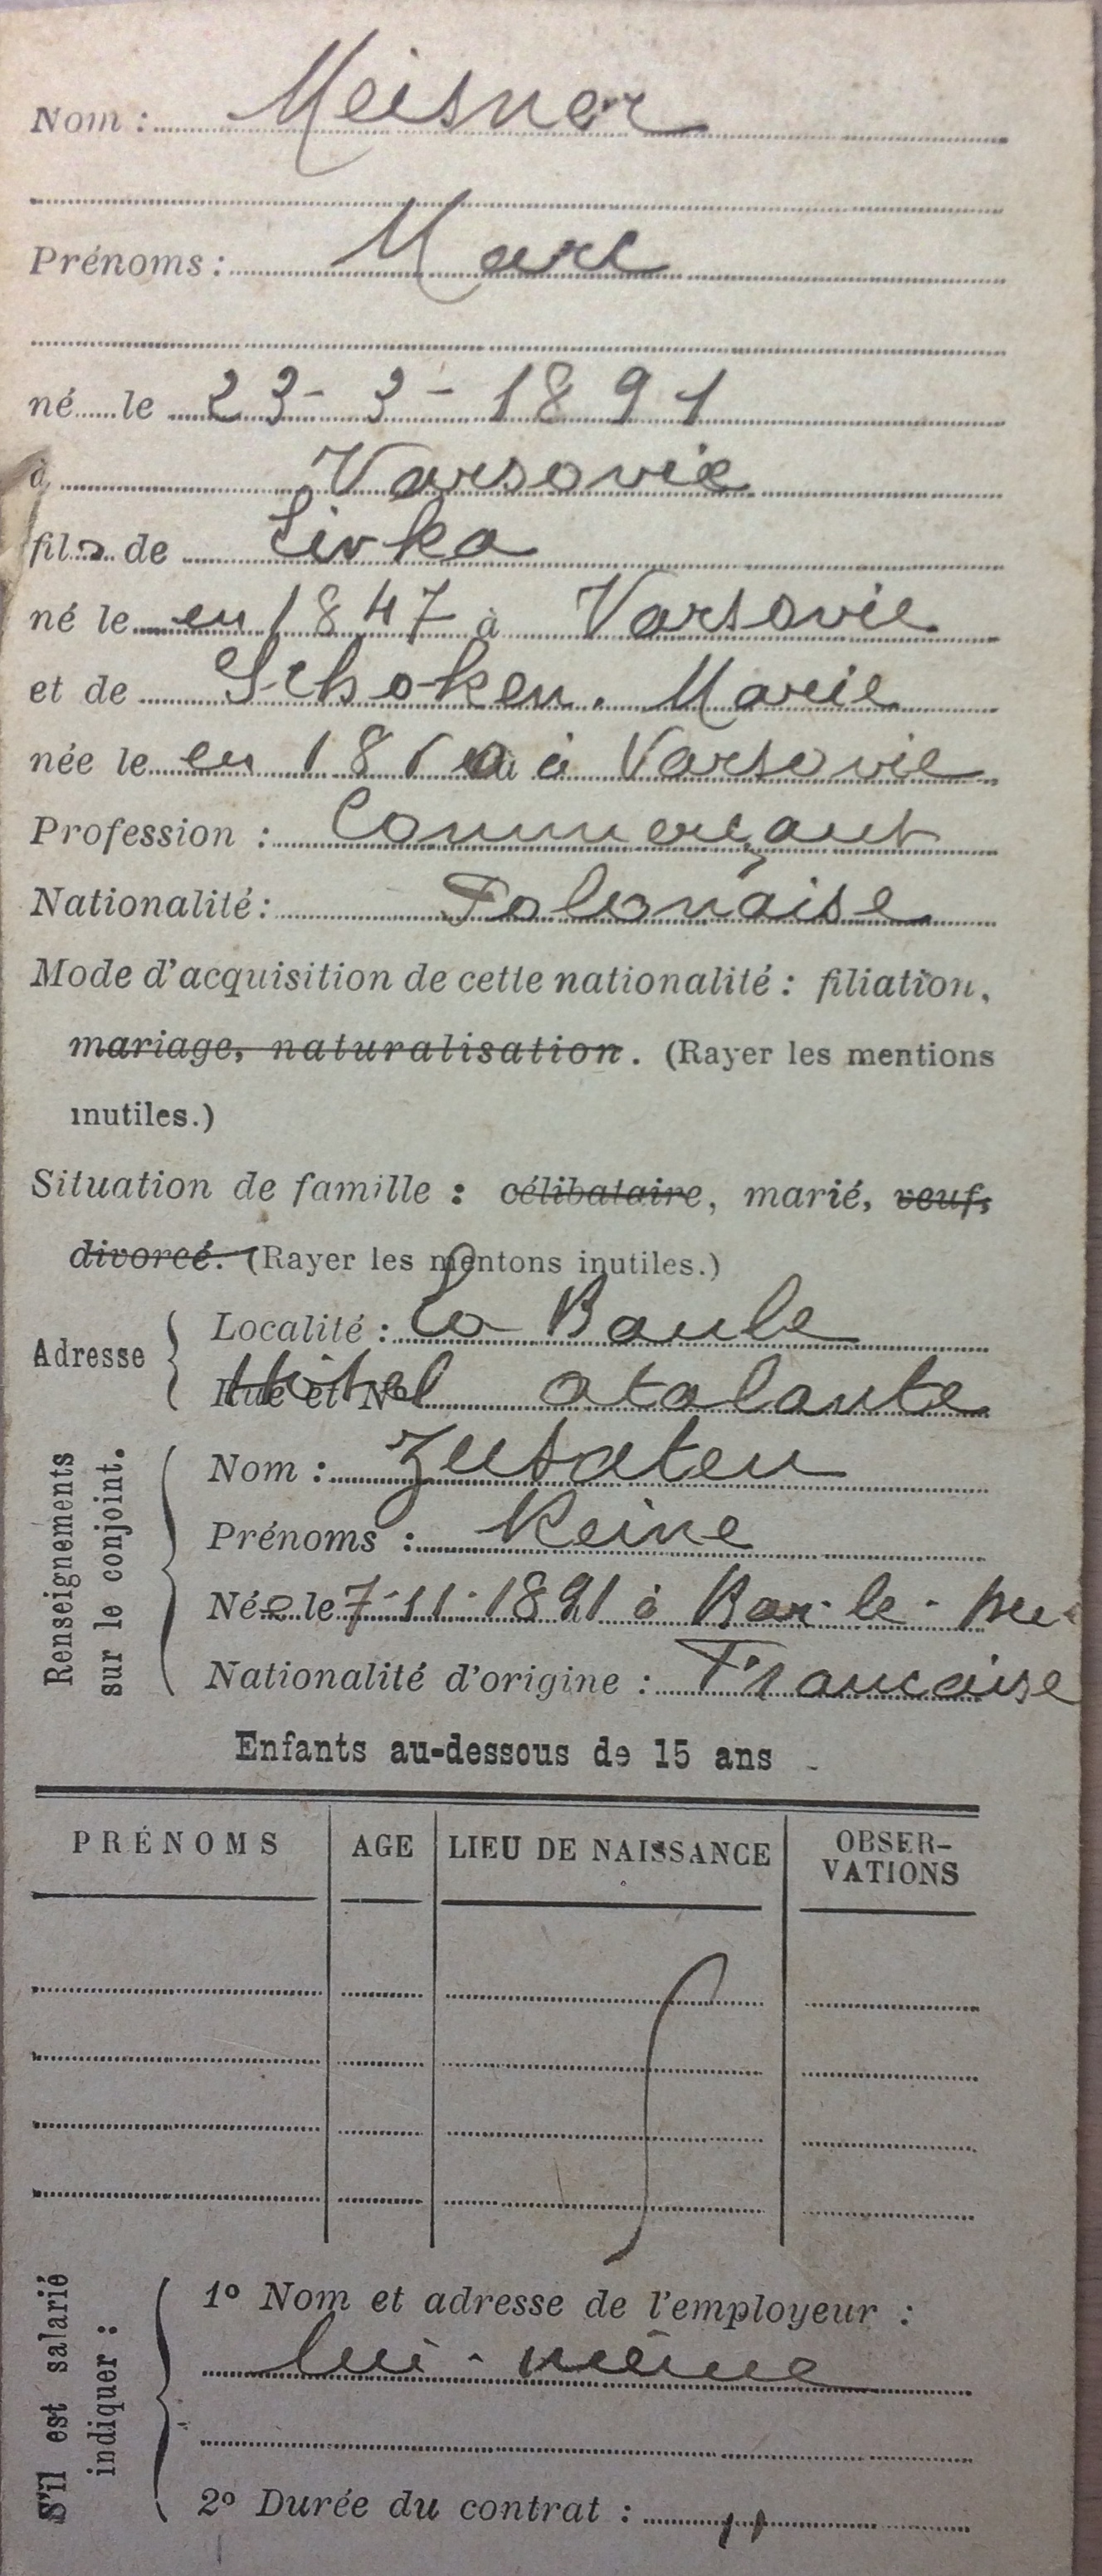 Nom : Meisner
Prénoms : Marc
né le 23-3-1891
à Varsovie
fils de Livka
né le en 1847 à Varsovie
et de Schoken. Marie
née le en 18 à Varsovie
Profession : Commerçant
Nationalité : Polonaise
Mode d'acquisition de cette nationalité : filiation,
mariage, naturalisation. (Rayer les mentions
inutiles.)
Situation de famille : célibataire, marié, veuf,
divorcé. (Rayer les mentons inutiles.)
Adresse
Localité : La Baule
Rue et No Hôtel atalante
Renseignements
sur le conjoint.
Nom : Zusateu
Prénoms : Reine
Née le 7-11-1891 à Bar-le-Duc
Nationalité d'origine : Francaise
Enfants au-dessous de 15 ans
PRÉNOMS AGE LIEU DE NAISSANCE OBSER-
VATIONS
S'il est salarié
indiquer :
1º Nom et adresse de l'employeur :
lui-même
2º Durée du contrat : "